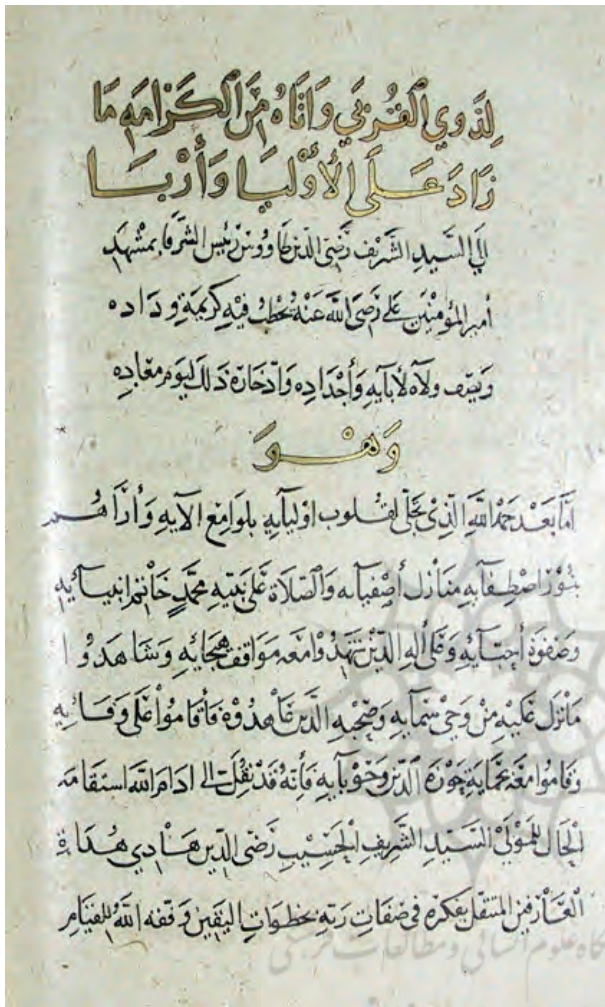 لِذَوِي الْقُرْبَي وَاتَاهُ مِنَ الْكَرَامَهِ مَا
زَادَ عَلَى الْأَوْلِيَا وَأَرْبَا
الي السَّيدِ الشَّريفِ رَضي الدين طاووس رئيس الشرفا بمشهد
أمير المؤمنين علي رَضيَ اللهُ عَنهُ يخطب فيهِ كريمة وِدَاده
ويصِف ولاه لآبايه وَأجْدَادِه وَادّخارَهُ ذَلكَ ليَوم معَادِه
وَهْوَ
أمّا بَعْد حَمْدِ اللهِ الَّذِي تجلّي لقلوب اوليآيهِ بلوامع الآيهِ وَأرَاهُم
بنُورِ اصْطِفآيهِ منَازل أصْفيآيه وَالصّلاة عَلى نَبيّه محمّدٍ خَاتم انبيآئِهِ
وصَفوَة أحِبّآيهِ وَعَلى آلهِ الذّين شَهدُوا معَه مَواقفَ هَيجائِهِ وَشاهَدُوا
مَا نَزل عَليهِ مِنْ وَحي سَمآيهِ وصَحبِه الذين عَاهدُوهُ فَأقَامُوا عَلى وَفَائِهِ
وقامُوا مَعَهُ بحمَايَة حَوزة الدّين وَحَوبآيهِ فَأنّهُ قَدْ نُقِلَت الى ادامَ الله استقامَة
الحَال للمَوْلي السَيّدِ الشَّريفِ الحَسِيبِ رَضي الدّين هَادي هُدَاة
العَارفين المتنقل بفكره في صِفَاتِ رَبّهِ بخطواتِ اليَقينِ وَفّقَهُ اللهُ للقِيَامِ
گاه علوم انسانی و مطالعات فرهنگی